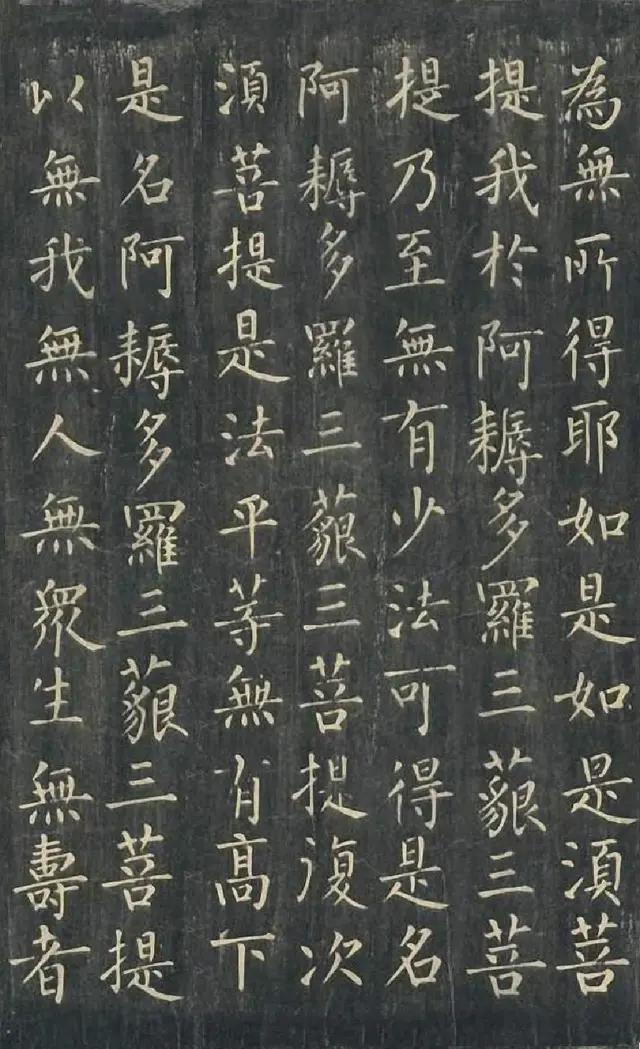 為無所得耶如是如是湏菩
提我於阿耨多羅三藐三菩
提乃至無有少法可得是名
阿耨多羅三藐三菩提復次
湏菩提是法平等無有高下
是名阿耨多羅三藐三菩提
以無我無人無眾生無壽者